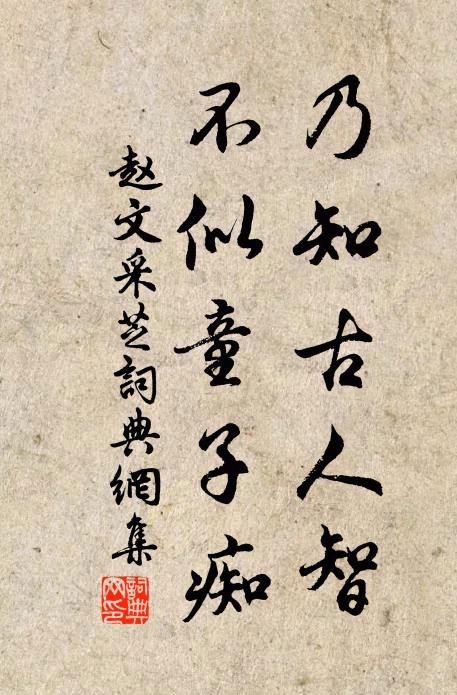 乃知古人智
不似童子痴
赵文采芝詞典網集
詞典网印